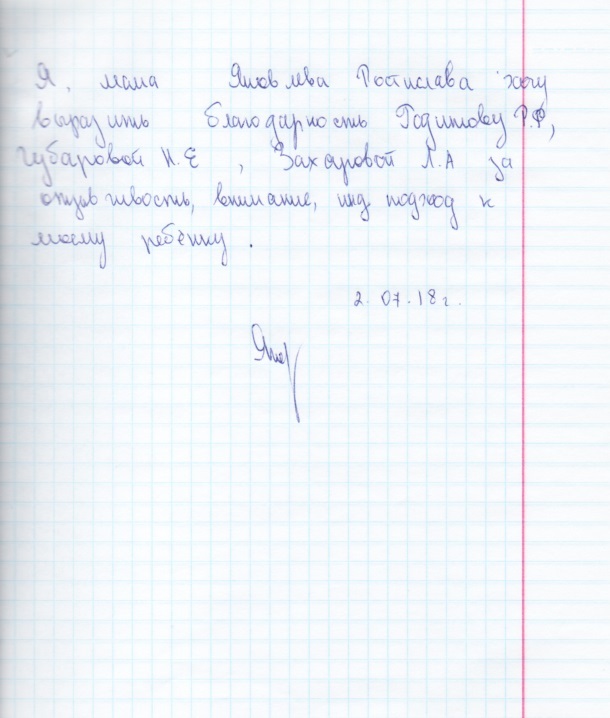 Я, мама Яковлева Ростислава хочу
выразить благодарность Годитову Р.Ф,
Губаровой Н.Е , Захаровой Л.А за
отзывчивость, внимание, инд подход к
моему ребёнку .
2. 07. 18 г.